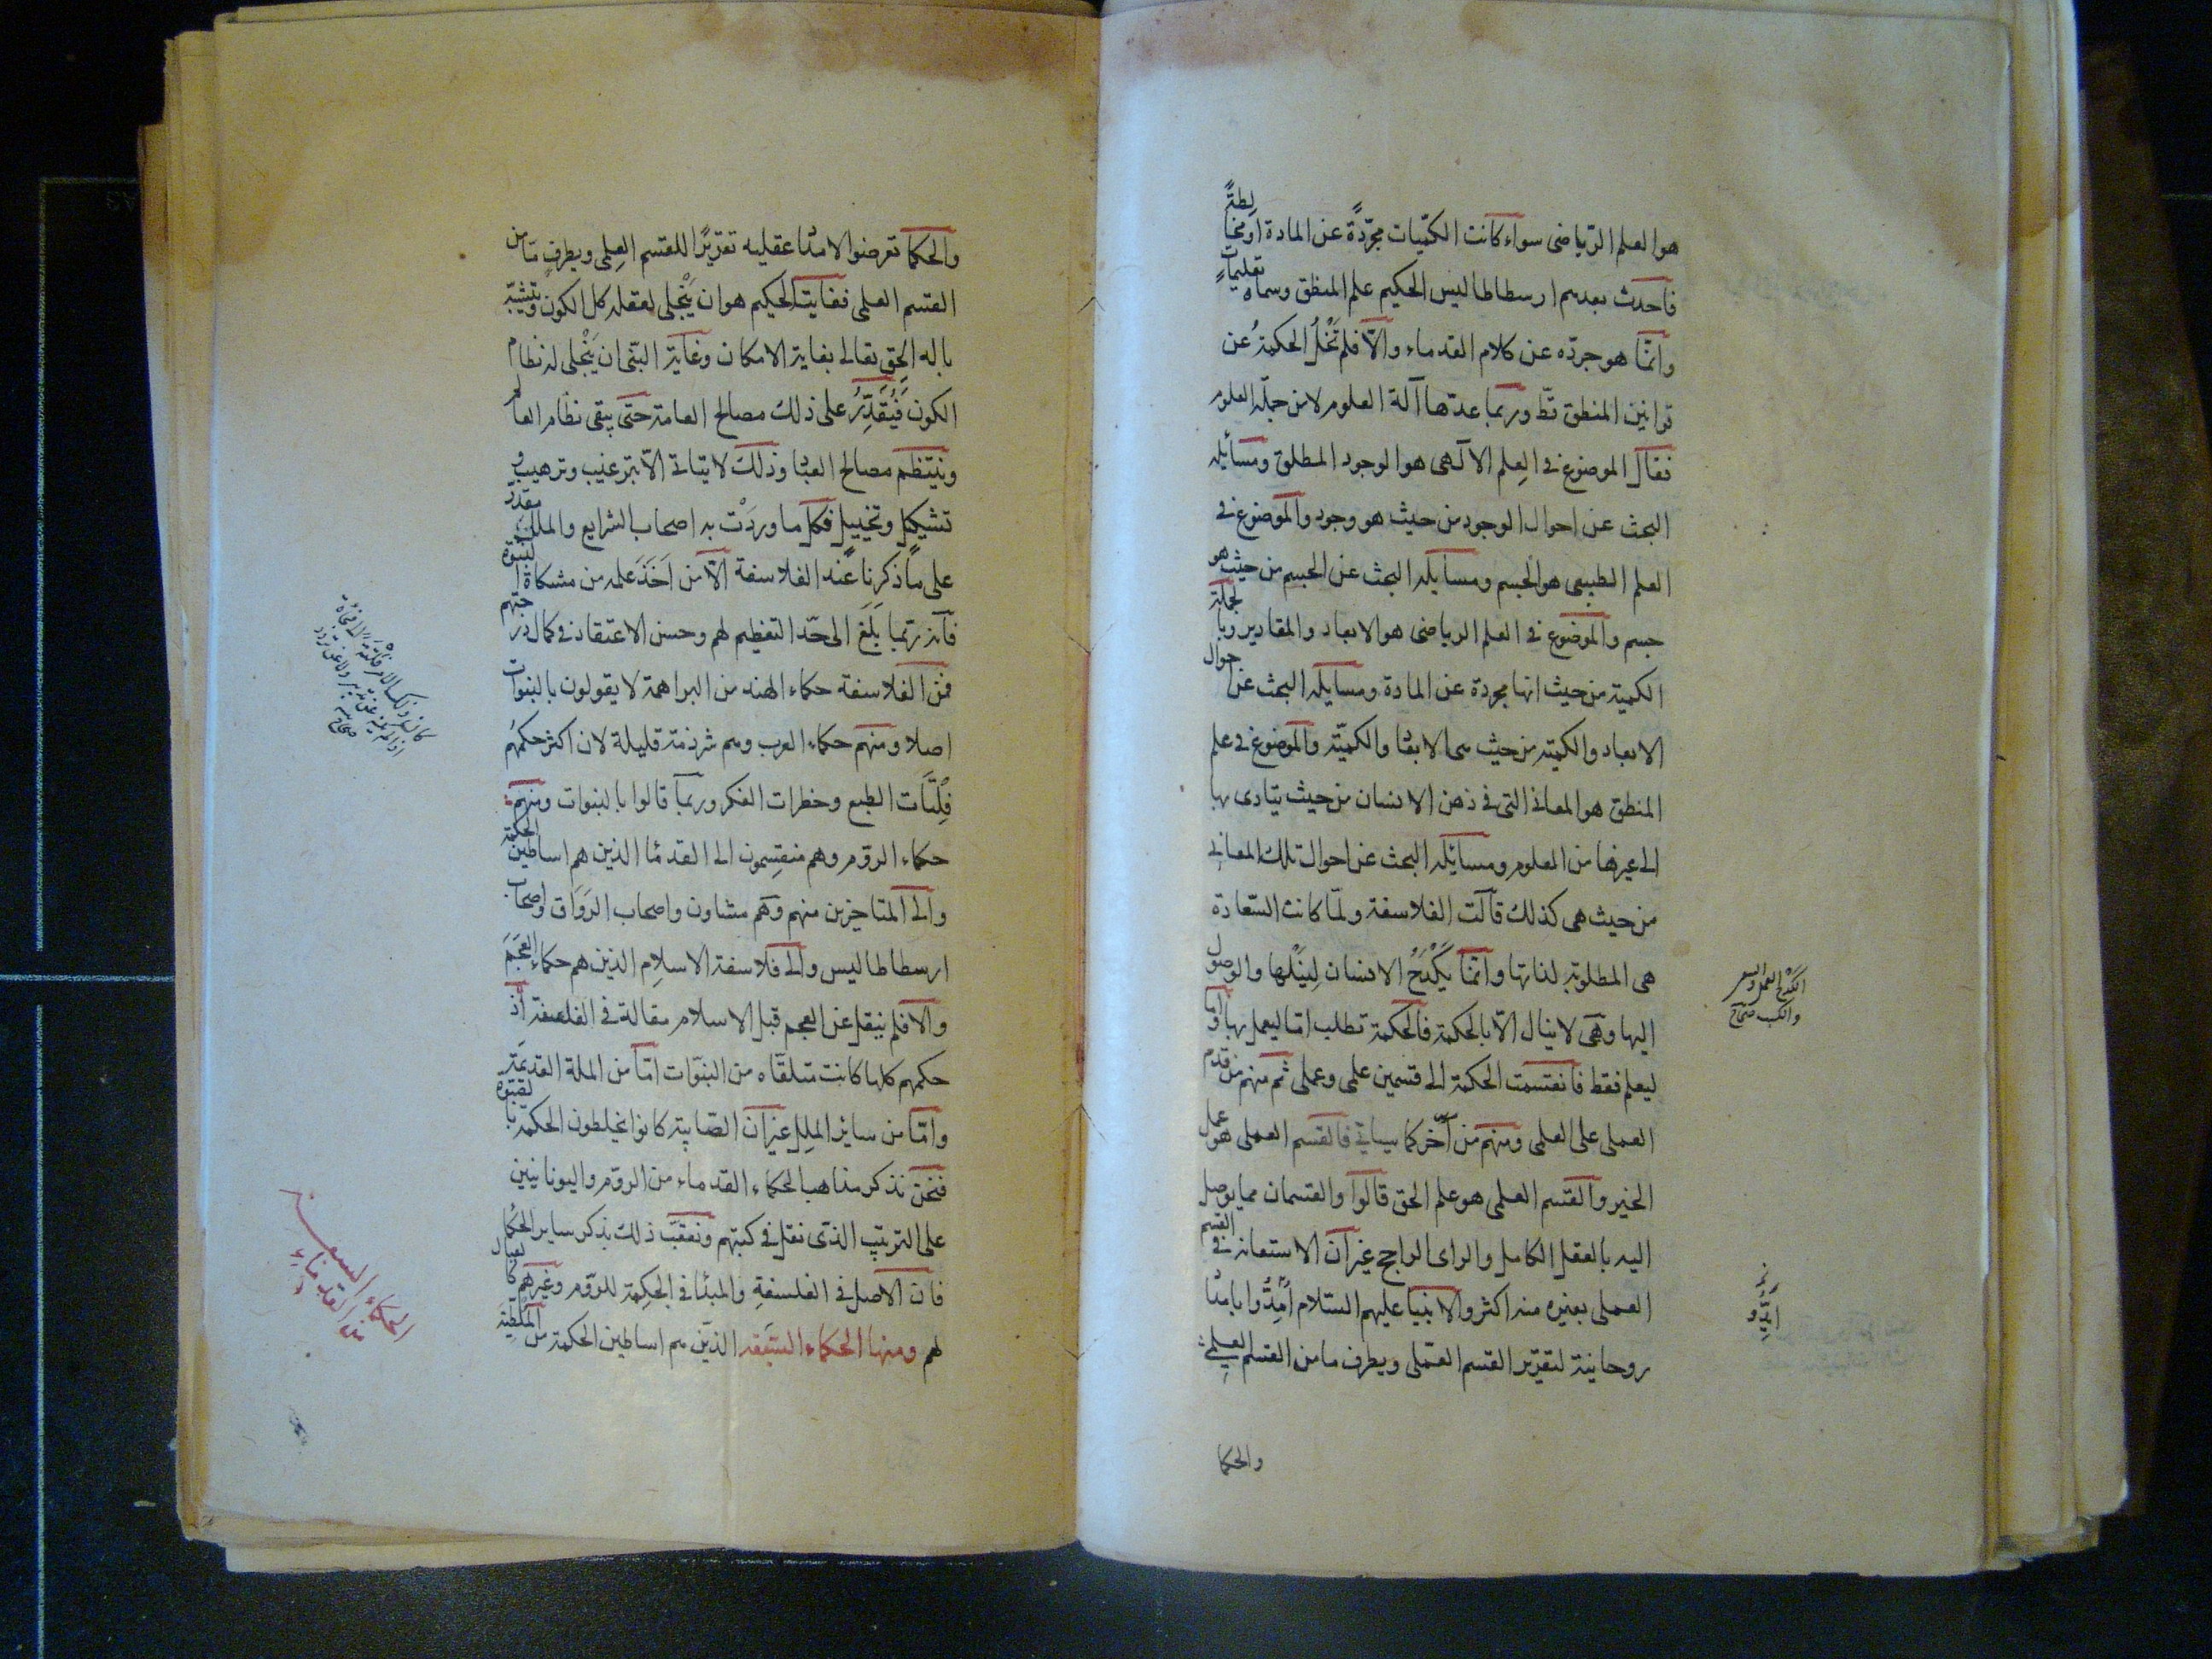 هو العلم الرّياضى سواء كانت الكمّيات مجرّدةً عن المادة اومخالطةً
فاحدث بعدهم ارسطاطاليس الحكيم علم المنطق وسماه تعليمات
وانّما هو جرّده عن كلام القدماء والاّ فلم تَخْلُ الحكمةُ عن
قوانين المنطق قطّ وربّما عدّها آلة العلوم لا من جملة العلوم
فقال الموضوع فى العِلم الآلهى هو الوجود المطلق ومسائله
البحث عن احوال الوجود من حيث هو وجود والموضوع فى
العلم الطبيعى هو الجسم ومسايله البحث عن الجسم من حيث هو
جسم والموضوع فى العلم الرياضى هو الابعاد والمقادير وبالجملة
الكمية من حيث انها مجردة عن المادة ومسايله البحث عن احوال
الابعاد والكميّة من حيث هى الابعاد والكميّة والموضوع فى علم
المنطق هو المعانى التى فى ذهن الانسان من حيث يتادى بها
الى غيرها من العلوم ومسائله البحث عن احوال تلك المعانى
من حيث هى كذلك قالت الفلاسفة ولمّا كانت السّعادة
هى المطلوبة لذاتها وانّما يَكْدَحُ الانسان لِنَيْلها والوصول
اليها وهى لا ينال الاّ بالحكمة فالحكمة تطلب امّا ليعمل بها وامّا
ليعلم فقط فانقسمت الحكمة الى قسمين علمى وعملى ثم منهم من قدم
العملى على العلمى ومنهم من أخّر كما سياتى فالقسم العملى هو عمل
الخير والقسم العلمى هو علم الحق قالوا والقسمان مما يوصل
اليه بالعقل الكامل والراى الراجح غير ان الاستعانة فى القسم
العملى بغيره منه اكثر والانبيا عليهم السّلام أُمِدُّوا بامداد
روحانية لتقرير القسم العملى وبطرف ما من القسم العلمى
والحكما
الكَدْح العمل والسعى
والكسب صحاح
أُيِّدُو
والحكما تعرضوا لامداد عقليه تقريرًا للقسم العِلمى وبطرف ما من
القسم العملى فغاية الحكيم هو ان يَتَجلى لعقله كل الكون ويتشبّه
بالاله الحق تعالى بغاية الامكان وغاية النبى ان يَتَجلى له نظام
الكون فَيُقَدِّرُ على ذلك مصالح العامة حتى يبقى نظام العالم
وينتظم مصالح العباد وذلك لا يتاتى الاّ بترغيب وترهيب و
تشكيل وتخييل فكل ما وردَتْ به اصحاب الشرايع والملل مقدر
على ما ذكرنا عند الفلاسفة الاّ من اَخَذَ علمه من مشكاة النبوة
فانه ربّما بَلَغَ الى حدّ التعظيم لهم وحسن الاعتقاد فى كمال درجتهم
فمن الفلاسفة حكماء الهند من البراهمة لا يقولون بالنبوات
اصلا ومنهم حكماء العرب وهم شرذمة قليلة لان اكثر حكمهُم
فِلْتَات الطبع وخطرات الفكر وربّما قالوا بالنبوات ومنهم
حكماء الروم وهم منقسِمون الى القدماء الذين هم اساطين الحكمة
والى المتاخرين منهم وهم مشاون واصحاب الرَوَاق واصحاب
ارسطاطاليس والى فلاسفة الاسلام الذين هم حكماء العَجَمَ
والا فلم ينقل عن العجم قبل الاسلام مقالة فى الفلسفة اذ
حكمهم كلها كانت متلقاه من النبوّات امّا من الملة القديمَة
وامّا من سائر الملل غير ان الصّابية كانوا يخلطون الحكمة بالصّبوة
فنحن نذكر مذاهب الحكماء القدماء من الروم واليونانيين
على الترتيب الذى نقل فى كتبهم ونعقب ذلك بذكر ساير الحكما
فان الاصل فى الفلسفةِ والمبدأ فى الحِكمة للروم وغيرهم كالعيال
لهم ومنها الحكماء السَبْعَة الذين هم اساطين الحكمة من المَلَطِية
الحكماء السبعة
من القدماءِ